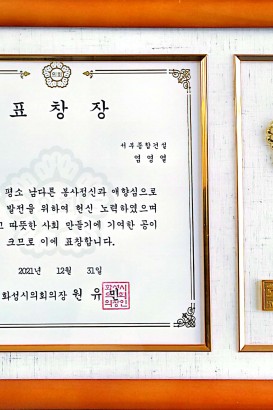 표창장
서부종합건설
염영열
평소 남다른 봉사정신과 애향심으로
발전을 위하여 헌신 노력하였으며
고 따뜻한 사회 만들기에 기여한 공이
크므로 이에 표창합니다.
2021년 12월 31일
화성시의회의장 원유민